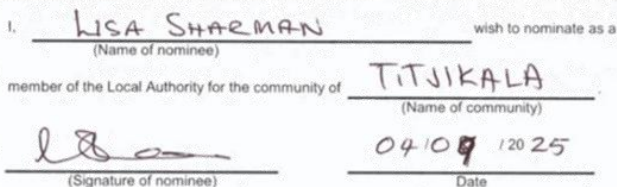 I, LISA SHARMAN wish to nominate as a
(Name of nominee)
member of the Local Authority for the community of TITJIKALA.
(Name of community)
04/09/2025
(Signature of nominee) Date